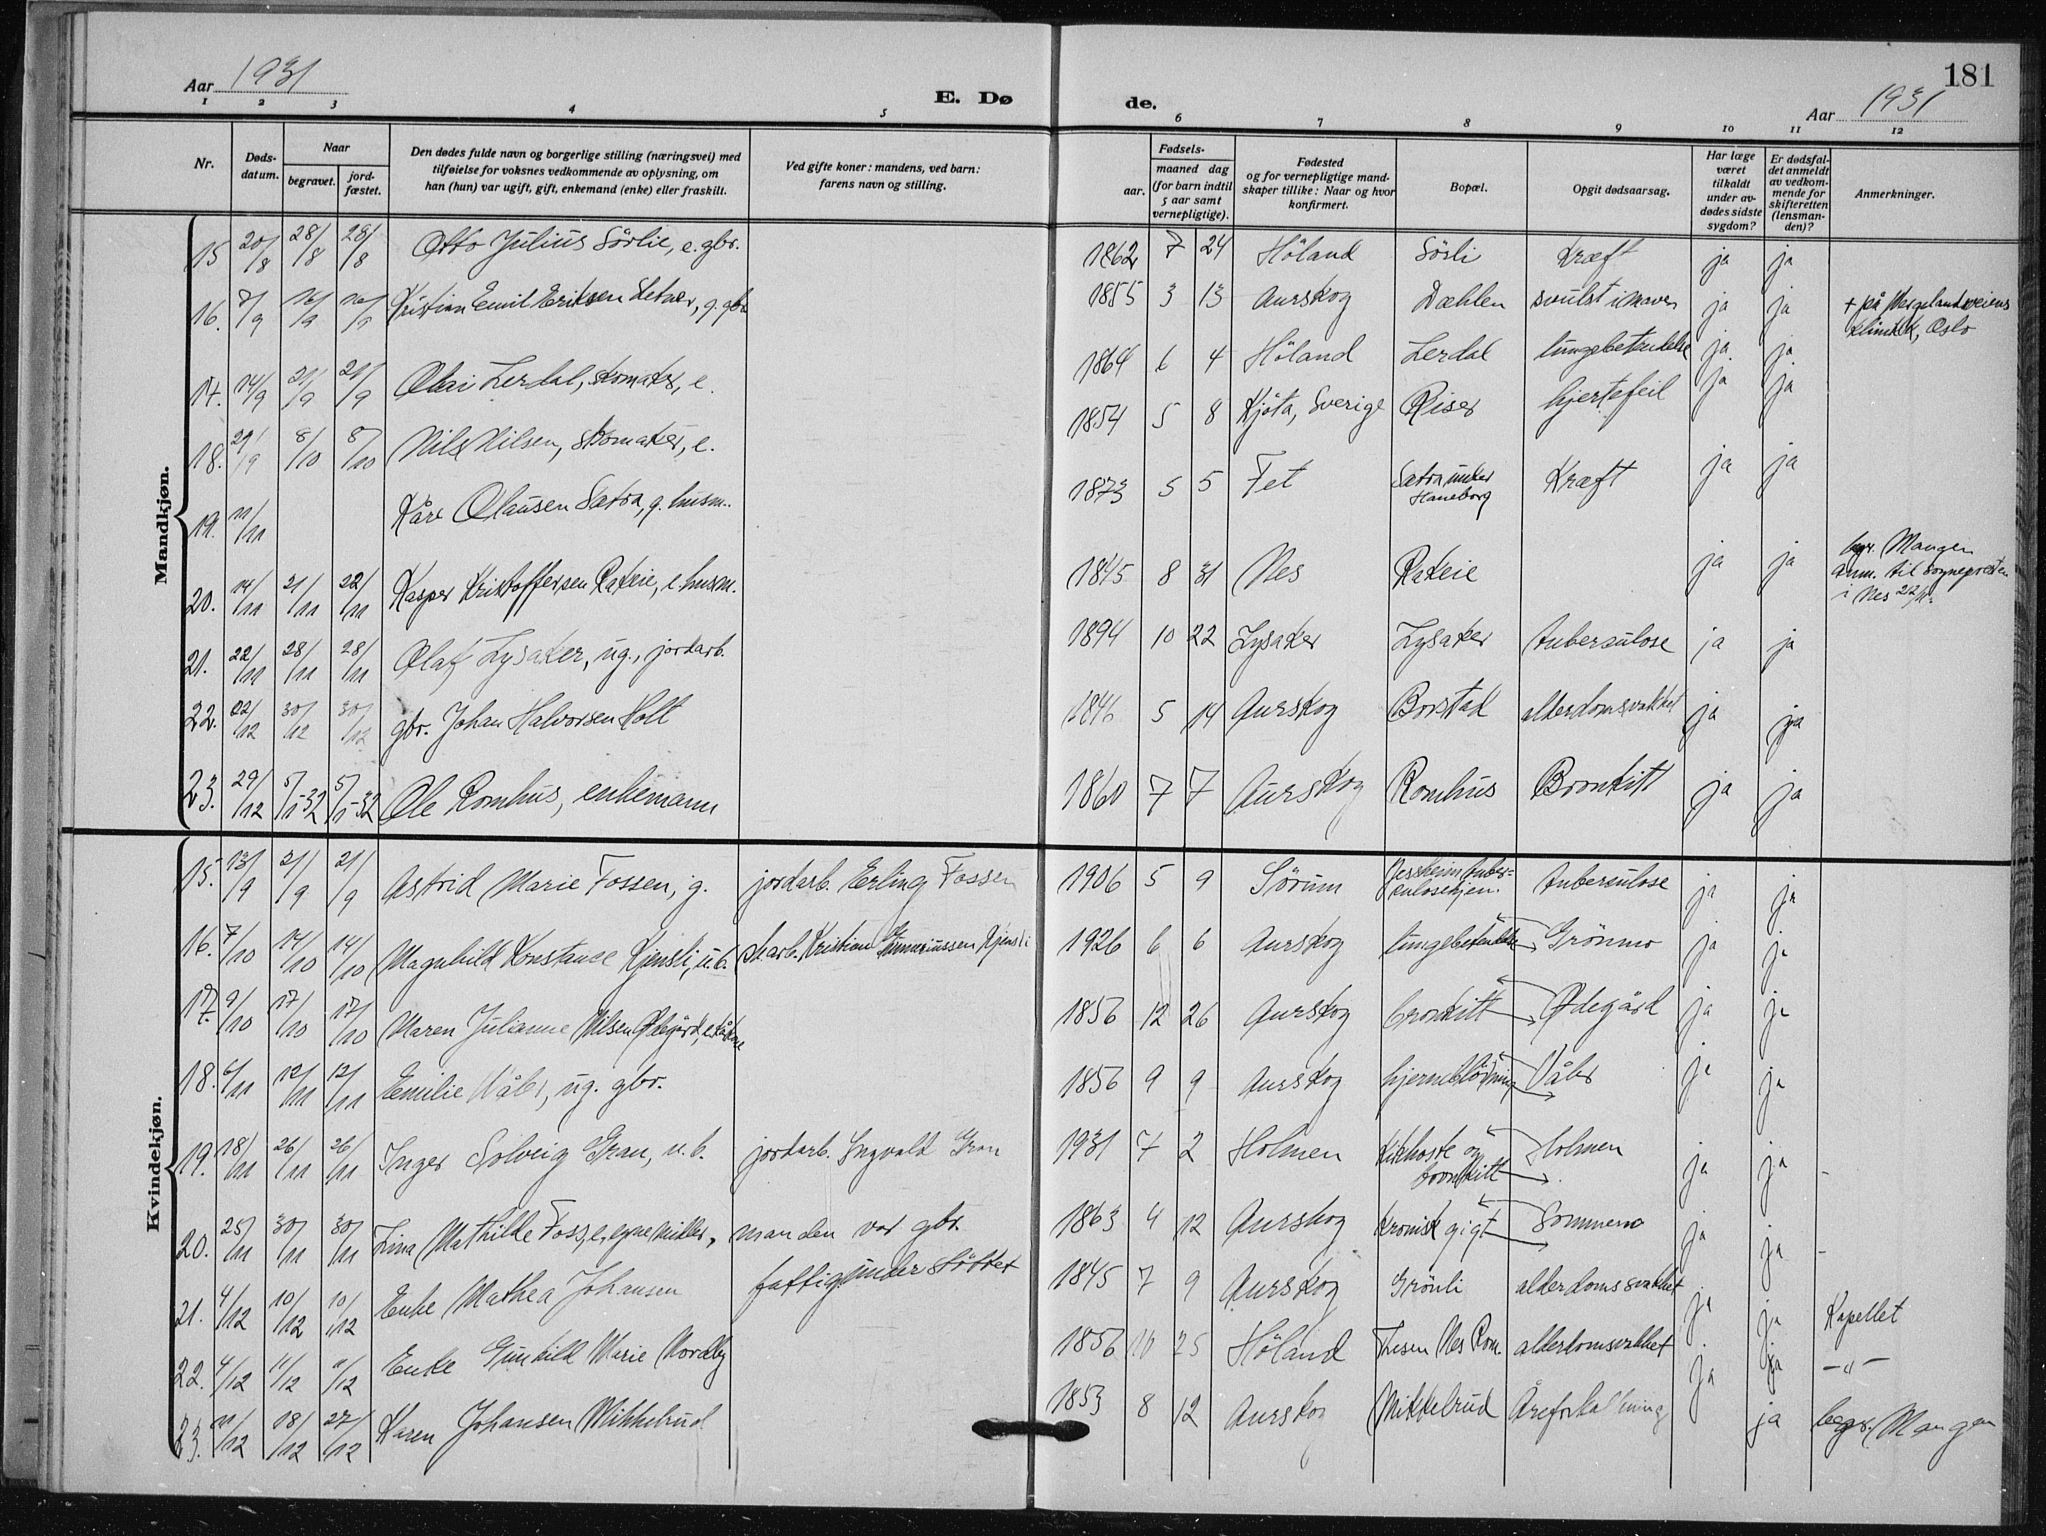 Aar 1931
E. Dø
de.
181
Aar 1931
1 2 3 4 5 6 7 8 9 10 11 12
Nr.
Døds-
datum.
Naar
begravet.
jord-
fæstet.
Den dødes fulde navn og borgerlige stilling (næringsvei) med
tilføielse for voksnes vedkommende av oplysning, om
han (hun) var ugift, gift, enkemand (enke) eller fraskilt.
Ved gifte koner: mandens, ved barn:
farens navn og stilling.
Fødsels-
aar.
maaned dag
(for barn indtil
5 aar samt
vernepligtige).
Fødested
og for vernepligtige mand-
skaper tillike: Naar og hvor
konfirmert.
Bopæl.
Opgit dødsaarsag.
Har læge
været
tilkaldt
under av-
dødes sidste
sygdom?
Er dødsfal-
det anmeldt
av vedkom-
mende for
skifteretten
(lensman-
den)?
Anmerkninger.
Mandkjøn.
15 20/8 28/8 28/8 Otto Julius Sörlie, e. gbr. 1862 7 24 Höland Sösli Kræft ja ja
16. 7/9 16/9 16/9 Kristian Emil Eriksen Letner, g. gbr 1855 3 13 Aurskog Dæhlen svulst i maven ja ja + på Wergelandsveiens
klinikk, Oslo
17. 14/9 21/9 21/9 Olai Lerdal, skomaker, e. 1864 6 4 Höland Lerdal lungebetendelse ja. ja
18. 29/9 8/10 8/10 Nils Nilsen, skomaker, e. 1854 5 8 Kjöta, Sverige Riser hjertefeil ja ja
19. 11/11 Kåre Olausen Satra, g. husm. 1873 5 5 Fet Satra under
Haneborg Kræft ja ja
20. 14/11 21/11 22/11 Kasper Kristoffersen Rakeie, e. husm. 1845 8 31 Nes Rakeie ja ja begr. Mangen
anm. til sogneprest en
i Nes 22/11.
21. 22/11 28/11 28/11 Olaf Lysaker, ug., jordarb. 1894 10 22 Lysaker Lysaker tuberculose ja ja
22. 22/12 30/12 30/12 gbr. Johan Halvorsen Holt 1846 5 14 Aurskog Borstad alderdomsvakhet ja ja
23. 29/12 5/1-32 5/1-32 Ole Romhus, enkemann 1860 7 7 Aurskog Romhus Bronkitt ja ja
Kvindekjøn.
15. 13/9 21/9 21/9 Astrid Marie Fossen, g. jordarb. Erling Fossen 1906 5 9 Sørum Jessheim tuber-
culosehjem. tuberculose ja ja
16. 7/10 14/10 14/10 Magnhild Konstance Kjensli, u.b. Kristian Kjensli 1926 6 6 Aurskog lungebetendelse Grönmo ja ja
17. 9/10 17/10 17/10 Maren Julianne Nilsen Ødegård, e. 1856 12 26 Aurskog bronkitt Ødegård ja ja
18. 6/11 12/11 12/11 Emilie Våler, ug. gbr. 1856 9 9 Aurskog hjerneblödning Våler ja ja
19. 18/11 26/11 26/11 Inger Solveig Gran, u.b. jordarb. Ingvald Gran 1931 7 2 Holmen Kikhoste og
bronkitt Holmen ja ja -
20. 25/11 30/11 30/11 Lina Mathilde Foss, e, egne midler, manden var gbr. 1863 4 12 Aurskog kronisk gigt Sommero ja ja -
21. 4/12 10/12 10/12 Enke Mathea Johansen fattigunderstöttet 1845 7 9 Aurskog Grönli alderdomssvakhet ja ja Kapellet
22. 4/12 11/12 11/12 Enke Gunhild Marie Nordby 1856 10 25 Höland Thesen Nes Rom. alderdomsvakhet ja ja -"-
23. 11/12 18/12 27/12 Karen Johansen Mikkelrud 1853 8 12 Aurskog Mikkelrud Åreforkalkning ja begr. Mangen